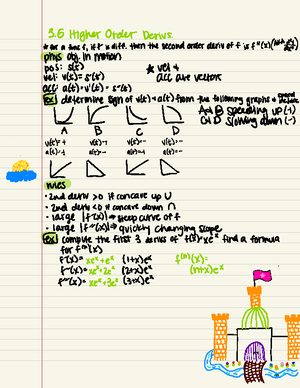 3.6 Higher Order Derivs.
* for a func f, if f' is diff. then the second order deriv of f is f''(x)
phys obj. in motion
pos: s(t) * vel +
vel: v(t) = s'(t) acc are vectors
acc: a(t) = v'(t) = s''(t)
ex determine sign of v(t) + a(t) from the following graphs +
speeding up
slowing down
A B C D
v(t) = +
rules
• 2nd deriv > 0 if concave up ∪
• 2nd deriv < 0 if concave down ∩
• large |f'(x)| → steep curve of f
• large |f''(x)| → quickly changing slope
ex compute the first 3 derivs of f(x) = xeˣ find a formula
for f⁽ⁿ⁾(x)
f'(x) = xeˣ + eˣ (1+x)eˣ f⁽ⁿ⁾(x) =
f''(x) = xeˣ + 2eˣ (2+x)eˣ (n+x)eˣ
f'''(x) = xeˣ + 3eˣ (3+x)eˣ